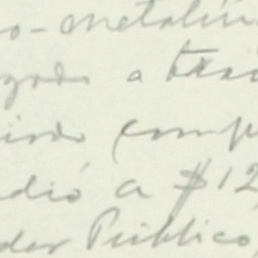 o-metalin
zado a tra
iodo comp
dió a $12
der Público,